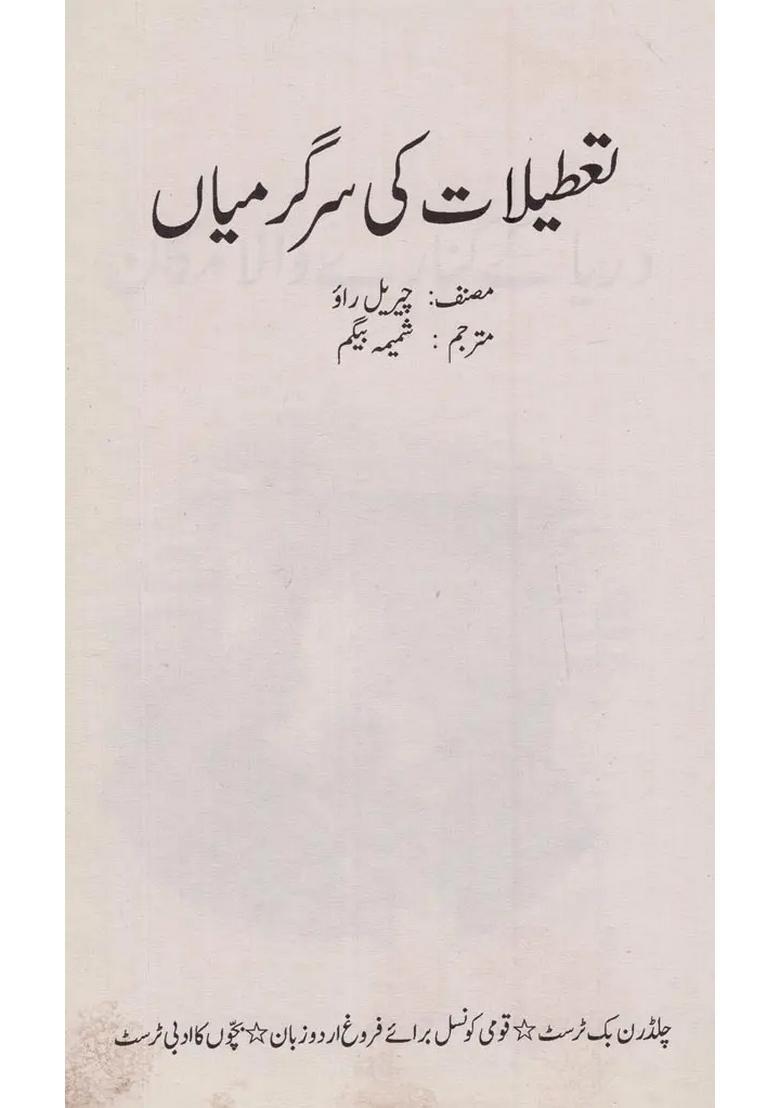 تعطیلات کی سرگرمیاں
مصنف: چیریل راؤ
مترجم : شمیمہ بیگم
چلڈرن بک ٹرسٹ ☆ قومی کونسل برائے فروغ اردو زبان ☆ بچّوں کا ادبی ٹرسٹ